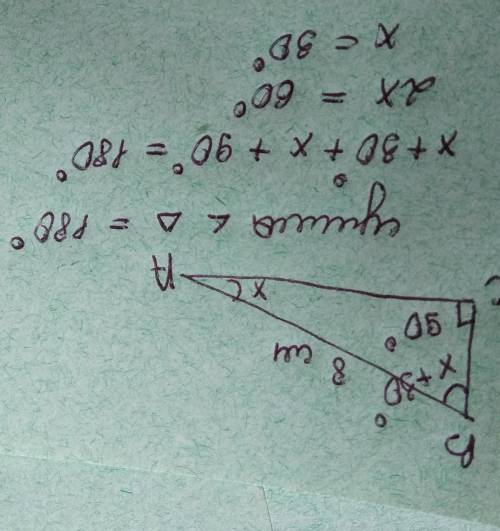 B
x+30°
8 см
90°
C
x
A
сумма < △ = 180°
x + 30° + x + 90° = 180°
2x = 60°
x = 30°